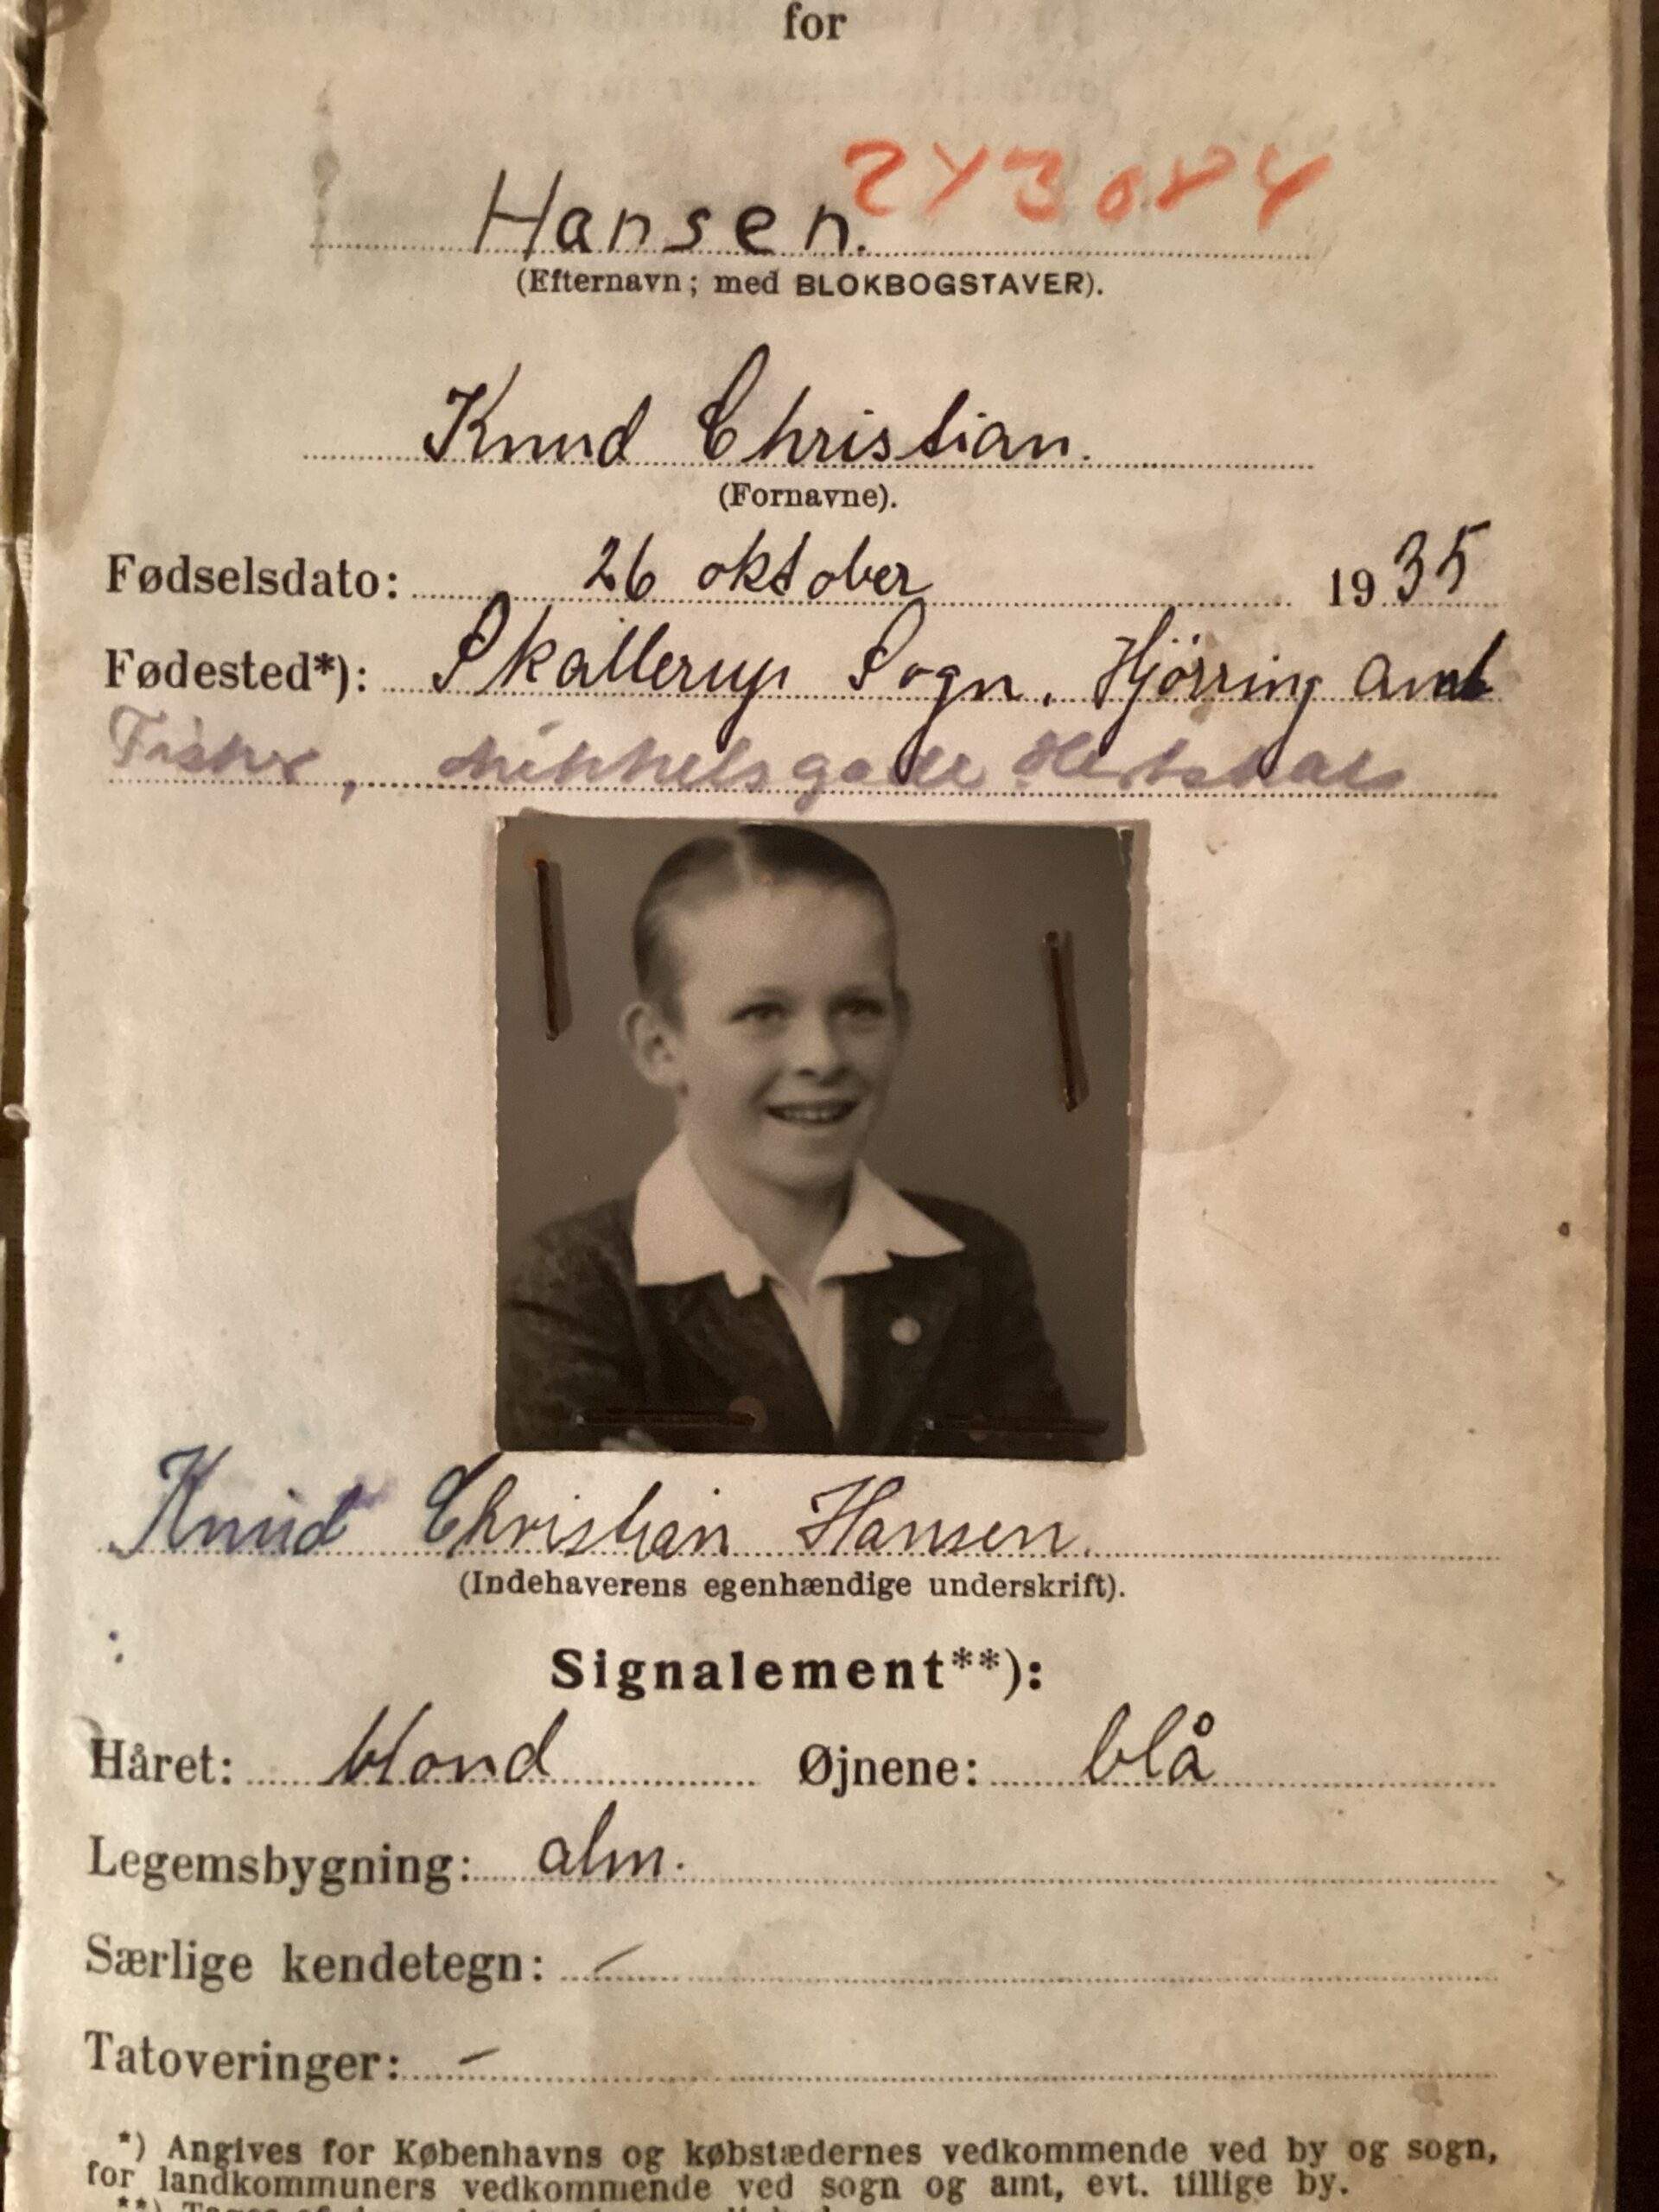 for
243084
Hansen.
(Efternavn; med BLOKBOGSTAVER).
Knud Christian.
(Fornavne).
Fødselsdato: 26 oktober 1935
Fødested*): Skallerup Sogn, Hjörring Amt
Fisker, Mikkelsgade Hirtshals
Knud Christian Hansen.
(Indehaverens egenhændige underskrift).
Signalement**):
Håret: blond Øjnene: blå
Legemsbygning: alm.
Særlige kendetegn: –
Tatoveringer: –
*) Angives for Københavns og købstædernes vedkommende ved by og sogn,
for landkommuners vedkommende ved sogn og amt, evt. tillige by.